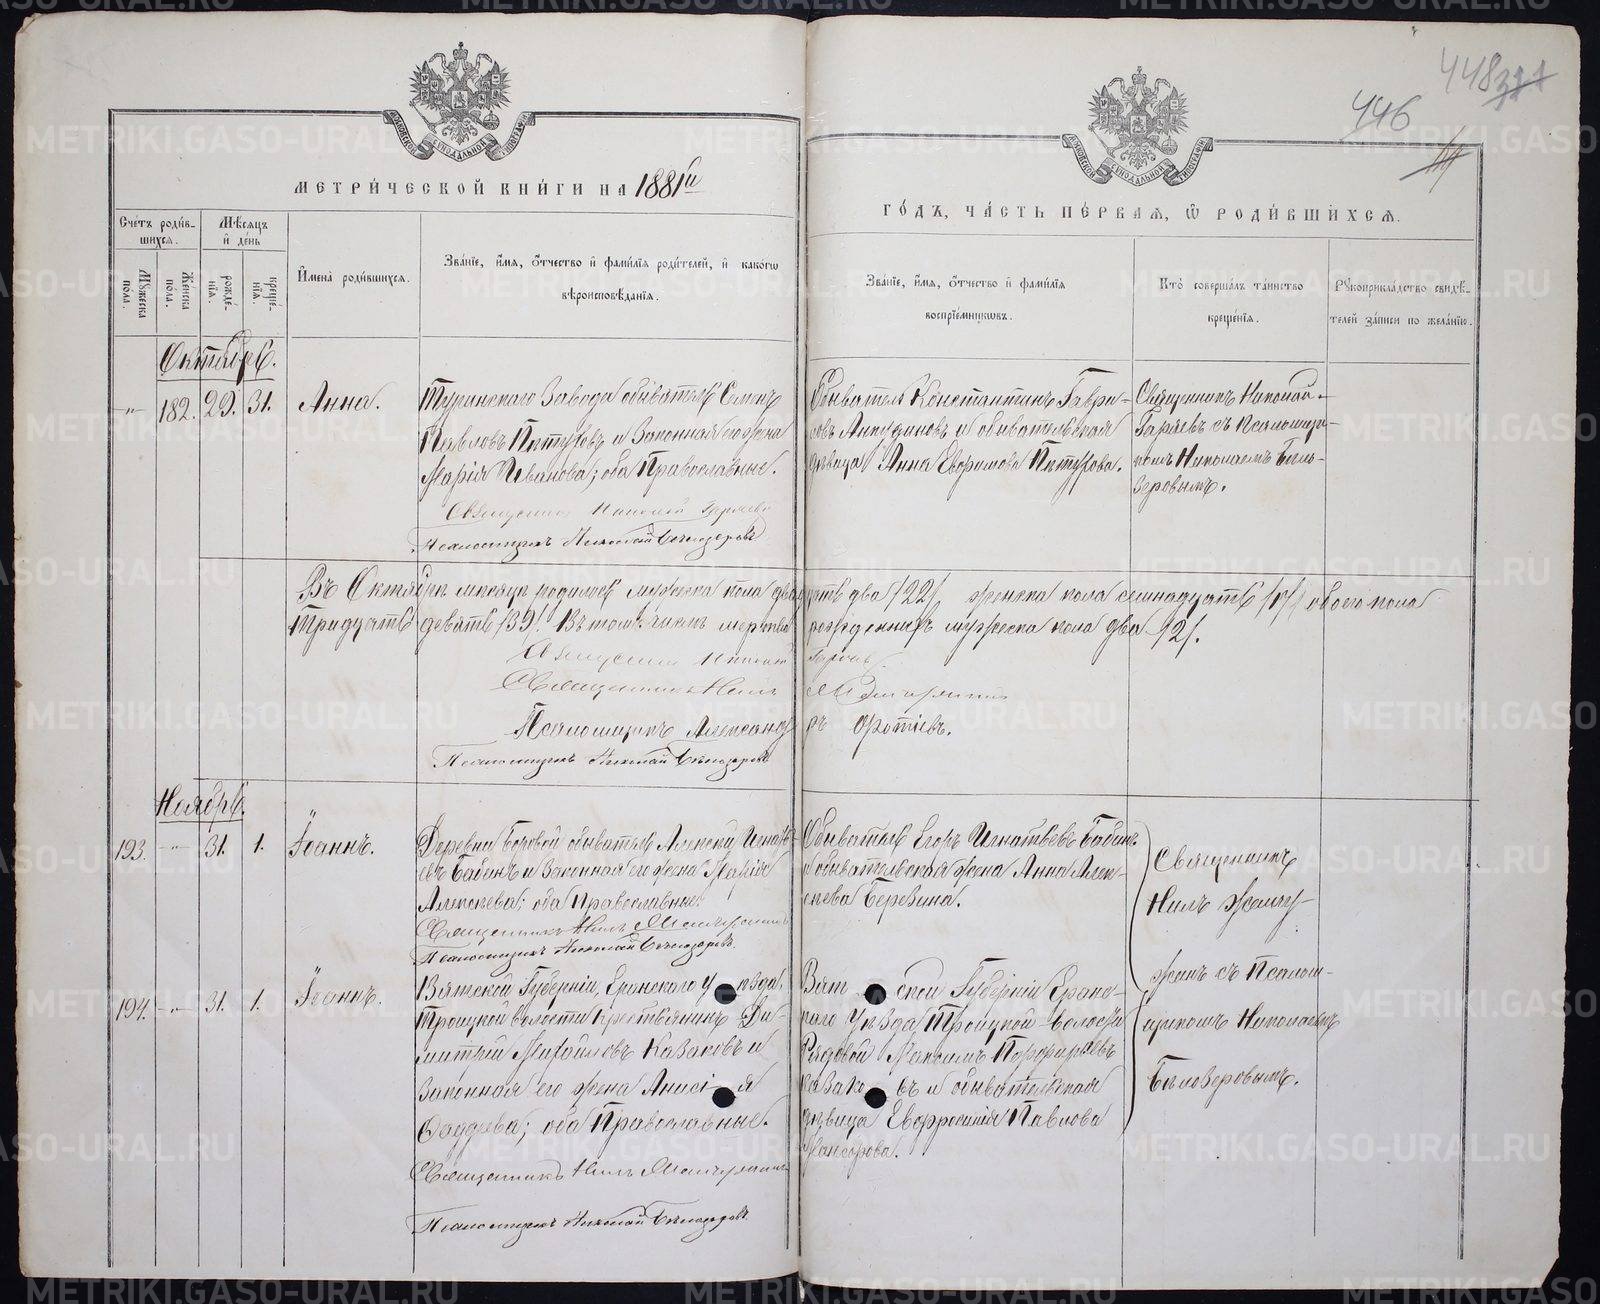 448
446
МЕТРИ́ЧЕСКОЙ КНИ́ГИ НА 1881й
ГО́ДЪ, ЧА́СТЬ ПЕ́РВАЯ, Ѡ҆ РОДИ́ВШИХСЯ.
Сче́тъ роди́в-
шихся.
Мѣ́сяцъ
и҆ де́нь
Мꙋ́жеска
по́ла.
Же́нска
по́ла.
рожде́-
нїя.
креще́-
нїя.
И҆мена̀ роди́вшихся.
Зва́нїе, и҆́мя, ѻ҆́тчество и҆ фамı́лїя роди́телей, и҆ како́гѡ
вѣроисповѣ́данїя.
Зва́нїе, и҆́мя, ѻ҆́тчество и҆ фамı́лїя
воспрїе́мникѡвъ.
Кто̀ соверша́лъ та́инство
креще́нїя.
Рꙋкоприкла́дство свидѣ́-
телей за́писи по жела́нїю.
Октябрь.
„ 182. 29. 31. Анна.
Туринскаго Завода обыватель Семенъ
Павловъ Пѣтуховъ и Законная его жена
Марія Иванова; оба Православные.
Священникъ Николай Гаряевъ
Псаломщикъ Николай Бѣлозеровъ
Обыватель Константинъ Гаври-
ловъ Анкудиновъ и обывательская
дѣвица Анна Евфимова Пѣтухова.
Священникъ Николай
Гаряевъ съ Псаломщи-
комъ Николаемъ Бѣло-
зеровымъ.
Въ Октябрѣ мѣсяцѣ родилось мужеска пола двадцать два /22/ женска пола семнадцать /17/ обоего пола
Тридцать девять /39/. Въ томъ числѣ мертворожденныхъ мужеска пола два /2/.
Священникъ Николай Гаряевъ.
Священникъ Нилъ
Псаломщикъ Александръ Фотіевъ.
Псаломщикъ Николай Бѣлозеровъ
Ноябрь.
193. „ 31. 1. Іоаннъ.
Деревни Боровой обыватель Алексѣй Игнатье-
въ Бабинъ и Законная его жена Марія
Алексѣева; оба Православные
Священникъ Нилъ
Псаломщикъ Николай Бѣлозеровъ.
Обыватель Егоръ Игнатьевъ Бабинъ
и обывательская жена Анна Алек-
сѣева Березина.
Священникъ
Нилъ
съ Псалом-
щикомъ Николаемъ
Бѣлозеровымъ.
194. „ 31. 1. Іоаннъ.
Вятской Губерніи, Яранского Уѣзда,
Троицкой волости Крестьянинъ Ди-
митрій Михайловъ Казаковъ и
Законная его жена Анисія
Фаддѣева; оба Православные.
Священникъ Нилъ
Псаломщикъ Николай Бѣлозеровъ.
Вятской Губерніи Яранс-
каго Уѣзда Троицкой волости
Рядовой Максимъ Порфирьевъ
Казаковъ и обывательская
дѣвица Евфросинія Павлова